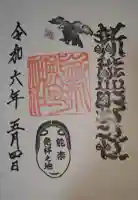 新熊野神社
能楽
発祥之地
令和六年 五月四日